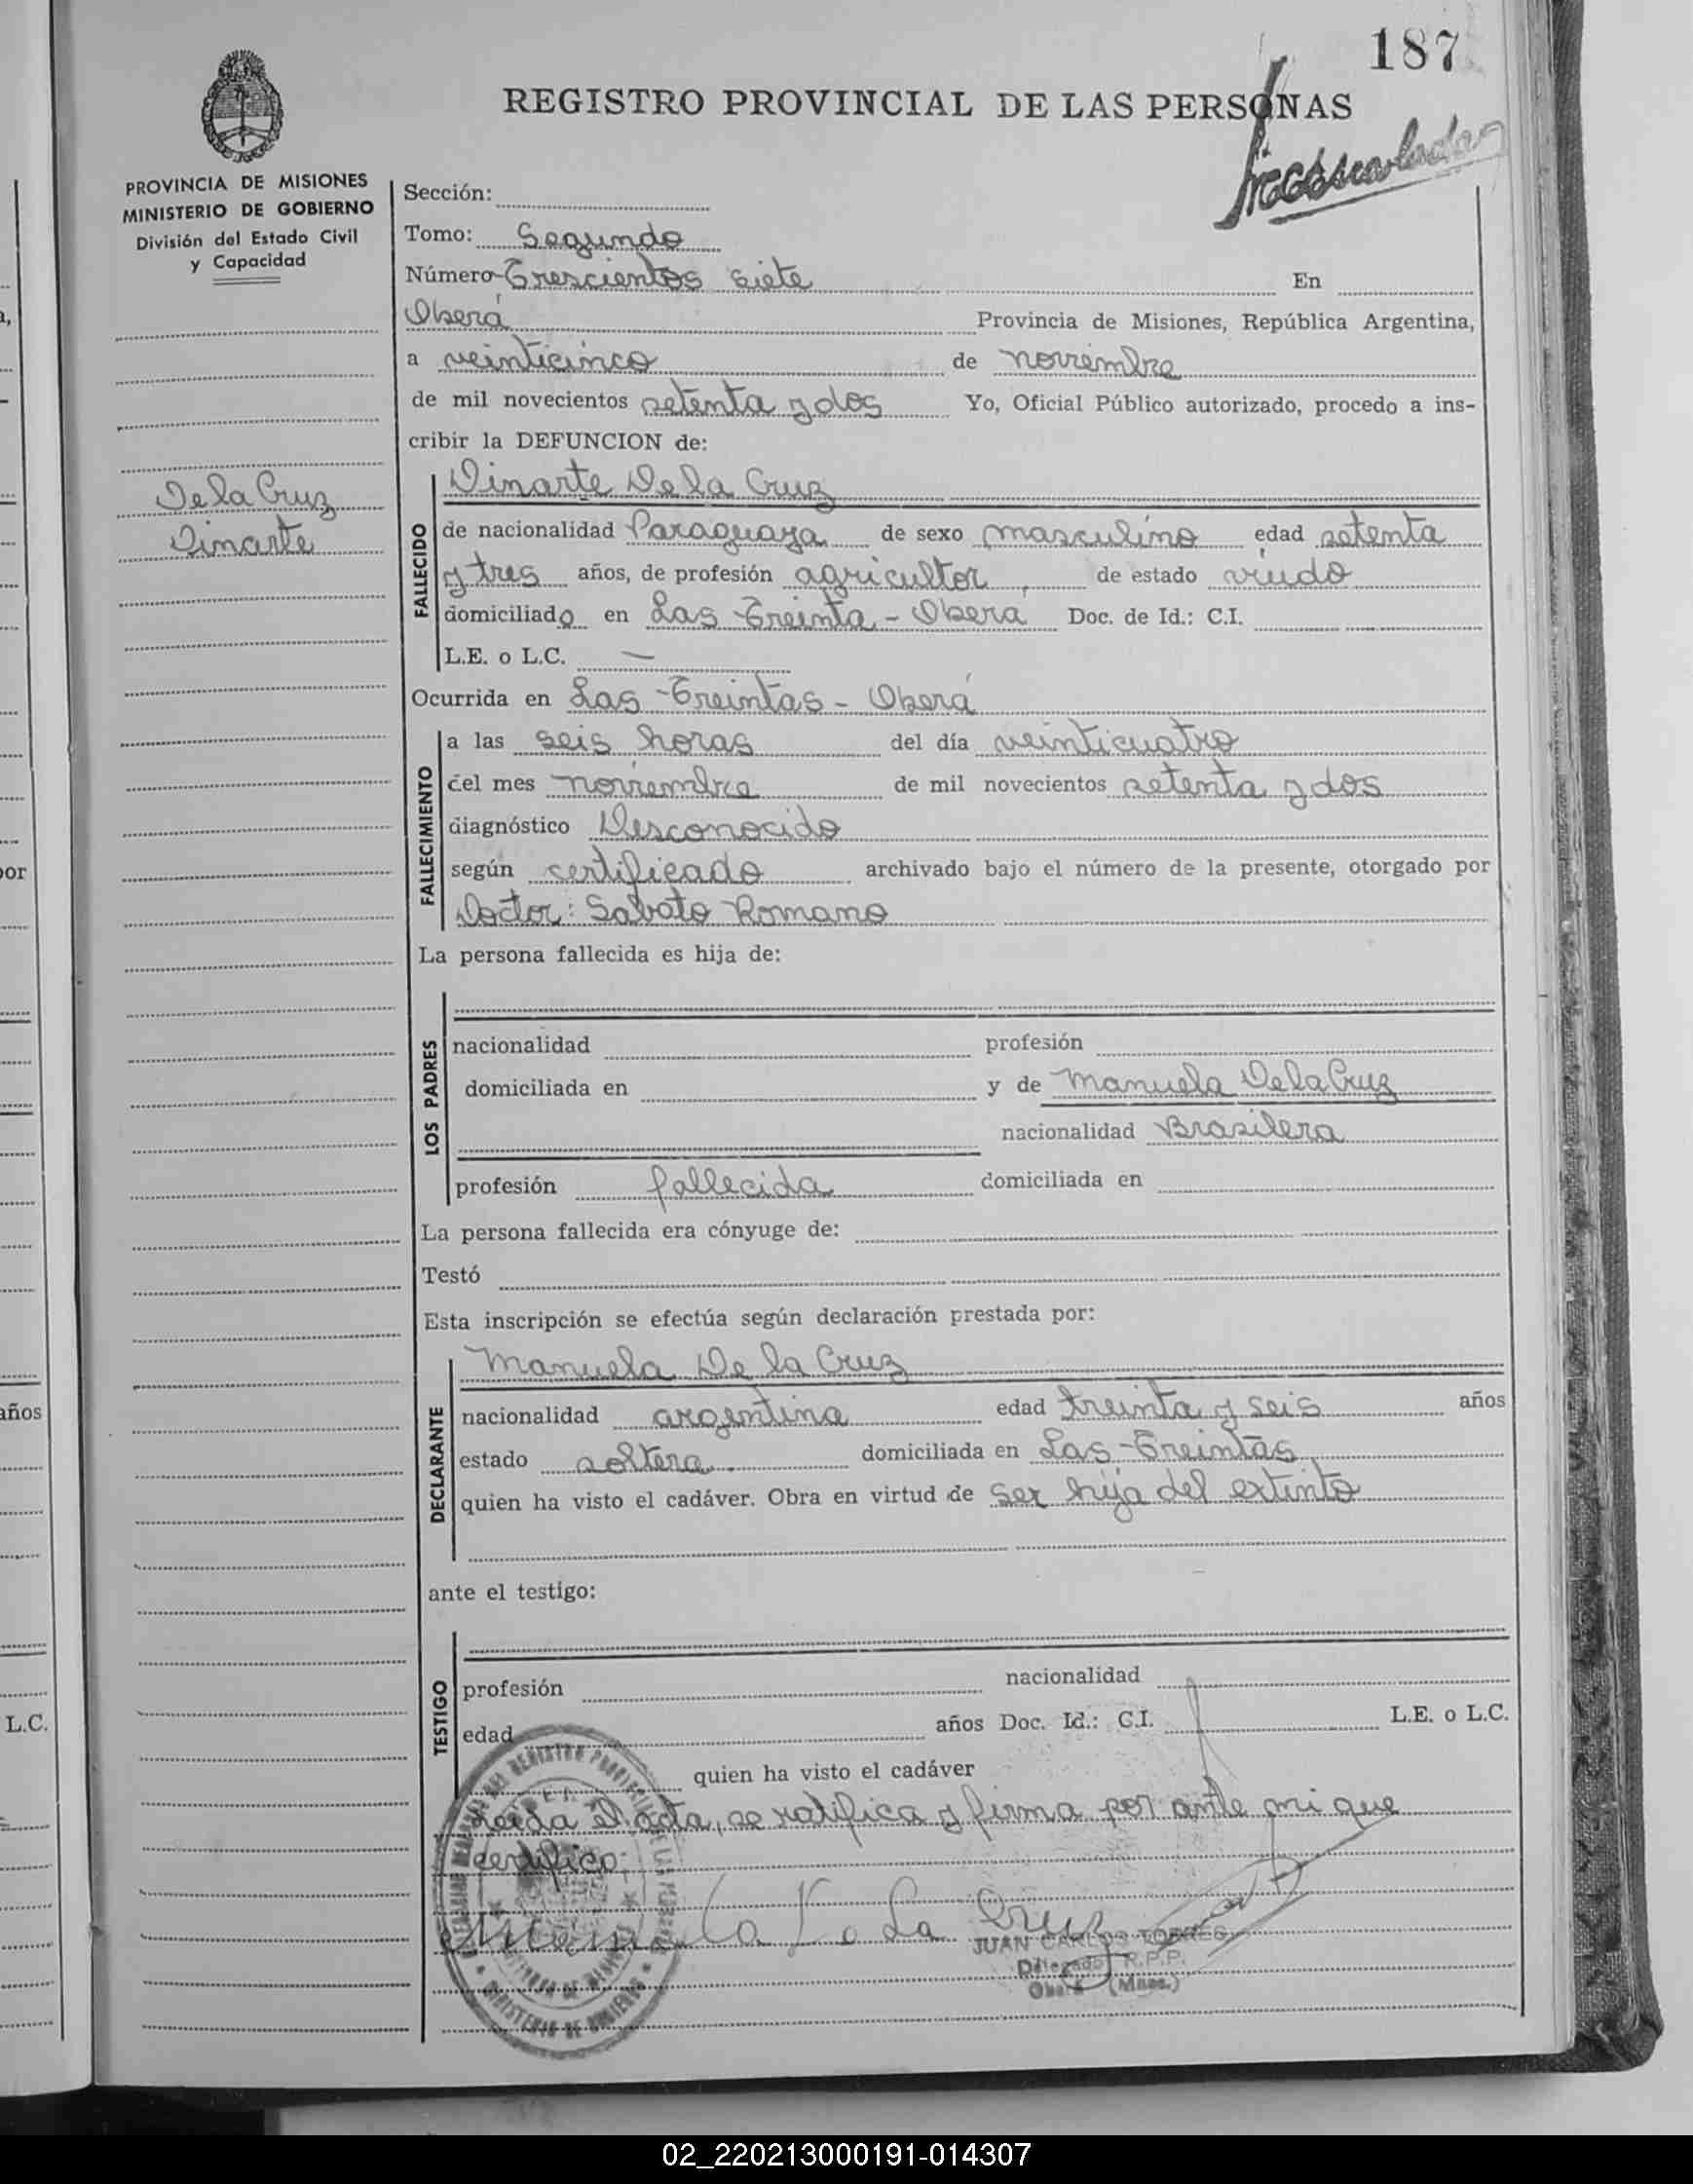 187
REGISTRO PROVINCIAL DE LAS PERSONAS
PROVINCIA DE MISIONES
MINISTERIO DE GOBIERNO
División del Estado Civil
y Capacidad
De la Cruz
Dinarte
Sección:
Tomo: Segundo
Número Trescientos siete En
Oberá Provincia de Misiones, República Argentina,
a veinticinco de noviembre
de mil novecientos setenta y dos Yo, Oficial Público autorizado, procedo a ins-
cribir la DEFUNCION de:
Dinarte De la Cruz
FALLECIDO
de nacionalidad Paraguaya de sexo masculino edad setenta
y tres años, de profesión agricultor, de estado viudo
domiciliado en Las Treinta - Oberá Doc. de Id.: C.I.
L.E. o L.C. —
Ocurrida en Las Treintas - Oberá
FALLECIMIENTO
a las seis horas del día veinticuatro
del mes noviembre de mil novecientos setenta y dos
diagnóstico Desconocido
según certificado archivado bajo el número de la presente, otorgado por
Doctor: Sabato Romano
La persona fallecida es hija de:
LOS PADRES
nacionalidad profesión
domiciliada en y de Manuela De la Cruz
nacionalidad Brasilera
profesión fallecida domiciliada en
La persona fallecida era cónyuge de:
Testó
Esta inscripción se efectúa según declaración prestada por:
Manuela De la Cruz
DECLARANTE
nacionalidad argentina edad treinta y seis años
estado soltera. domiciliada en Las Treintas
quien ha visto el cadáver. Obra en virtud de ser hija del extinto
ante el testigo:
TESTIGO
profesión nacionalidad
edad años Doc. Id.: C.I. L.E. o L.C.
quien ha visto el cadáver
Leída el acta, se ratifica y firma por ante mi que
certifico.
Manuela De La Cruz
JUAN CARLOS TORRES
Delegado R.P.P.
Oberá (Mnes.)
MINISTERIO DE GOBIERNO
años
L.C.
02_220213000191-014307